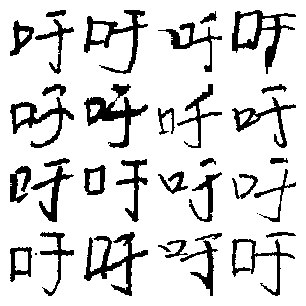 吁吁吁吁
吁吁吁吁
吁吁吁吁
吁吁吁吁